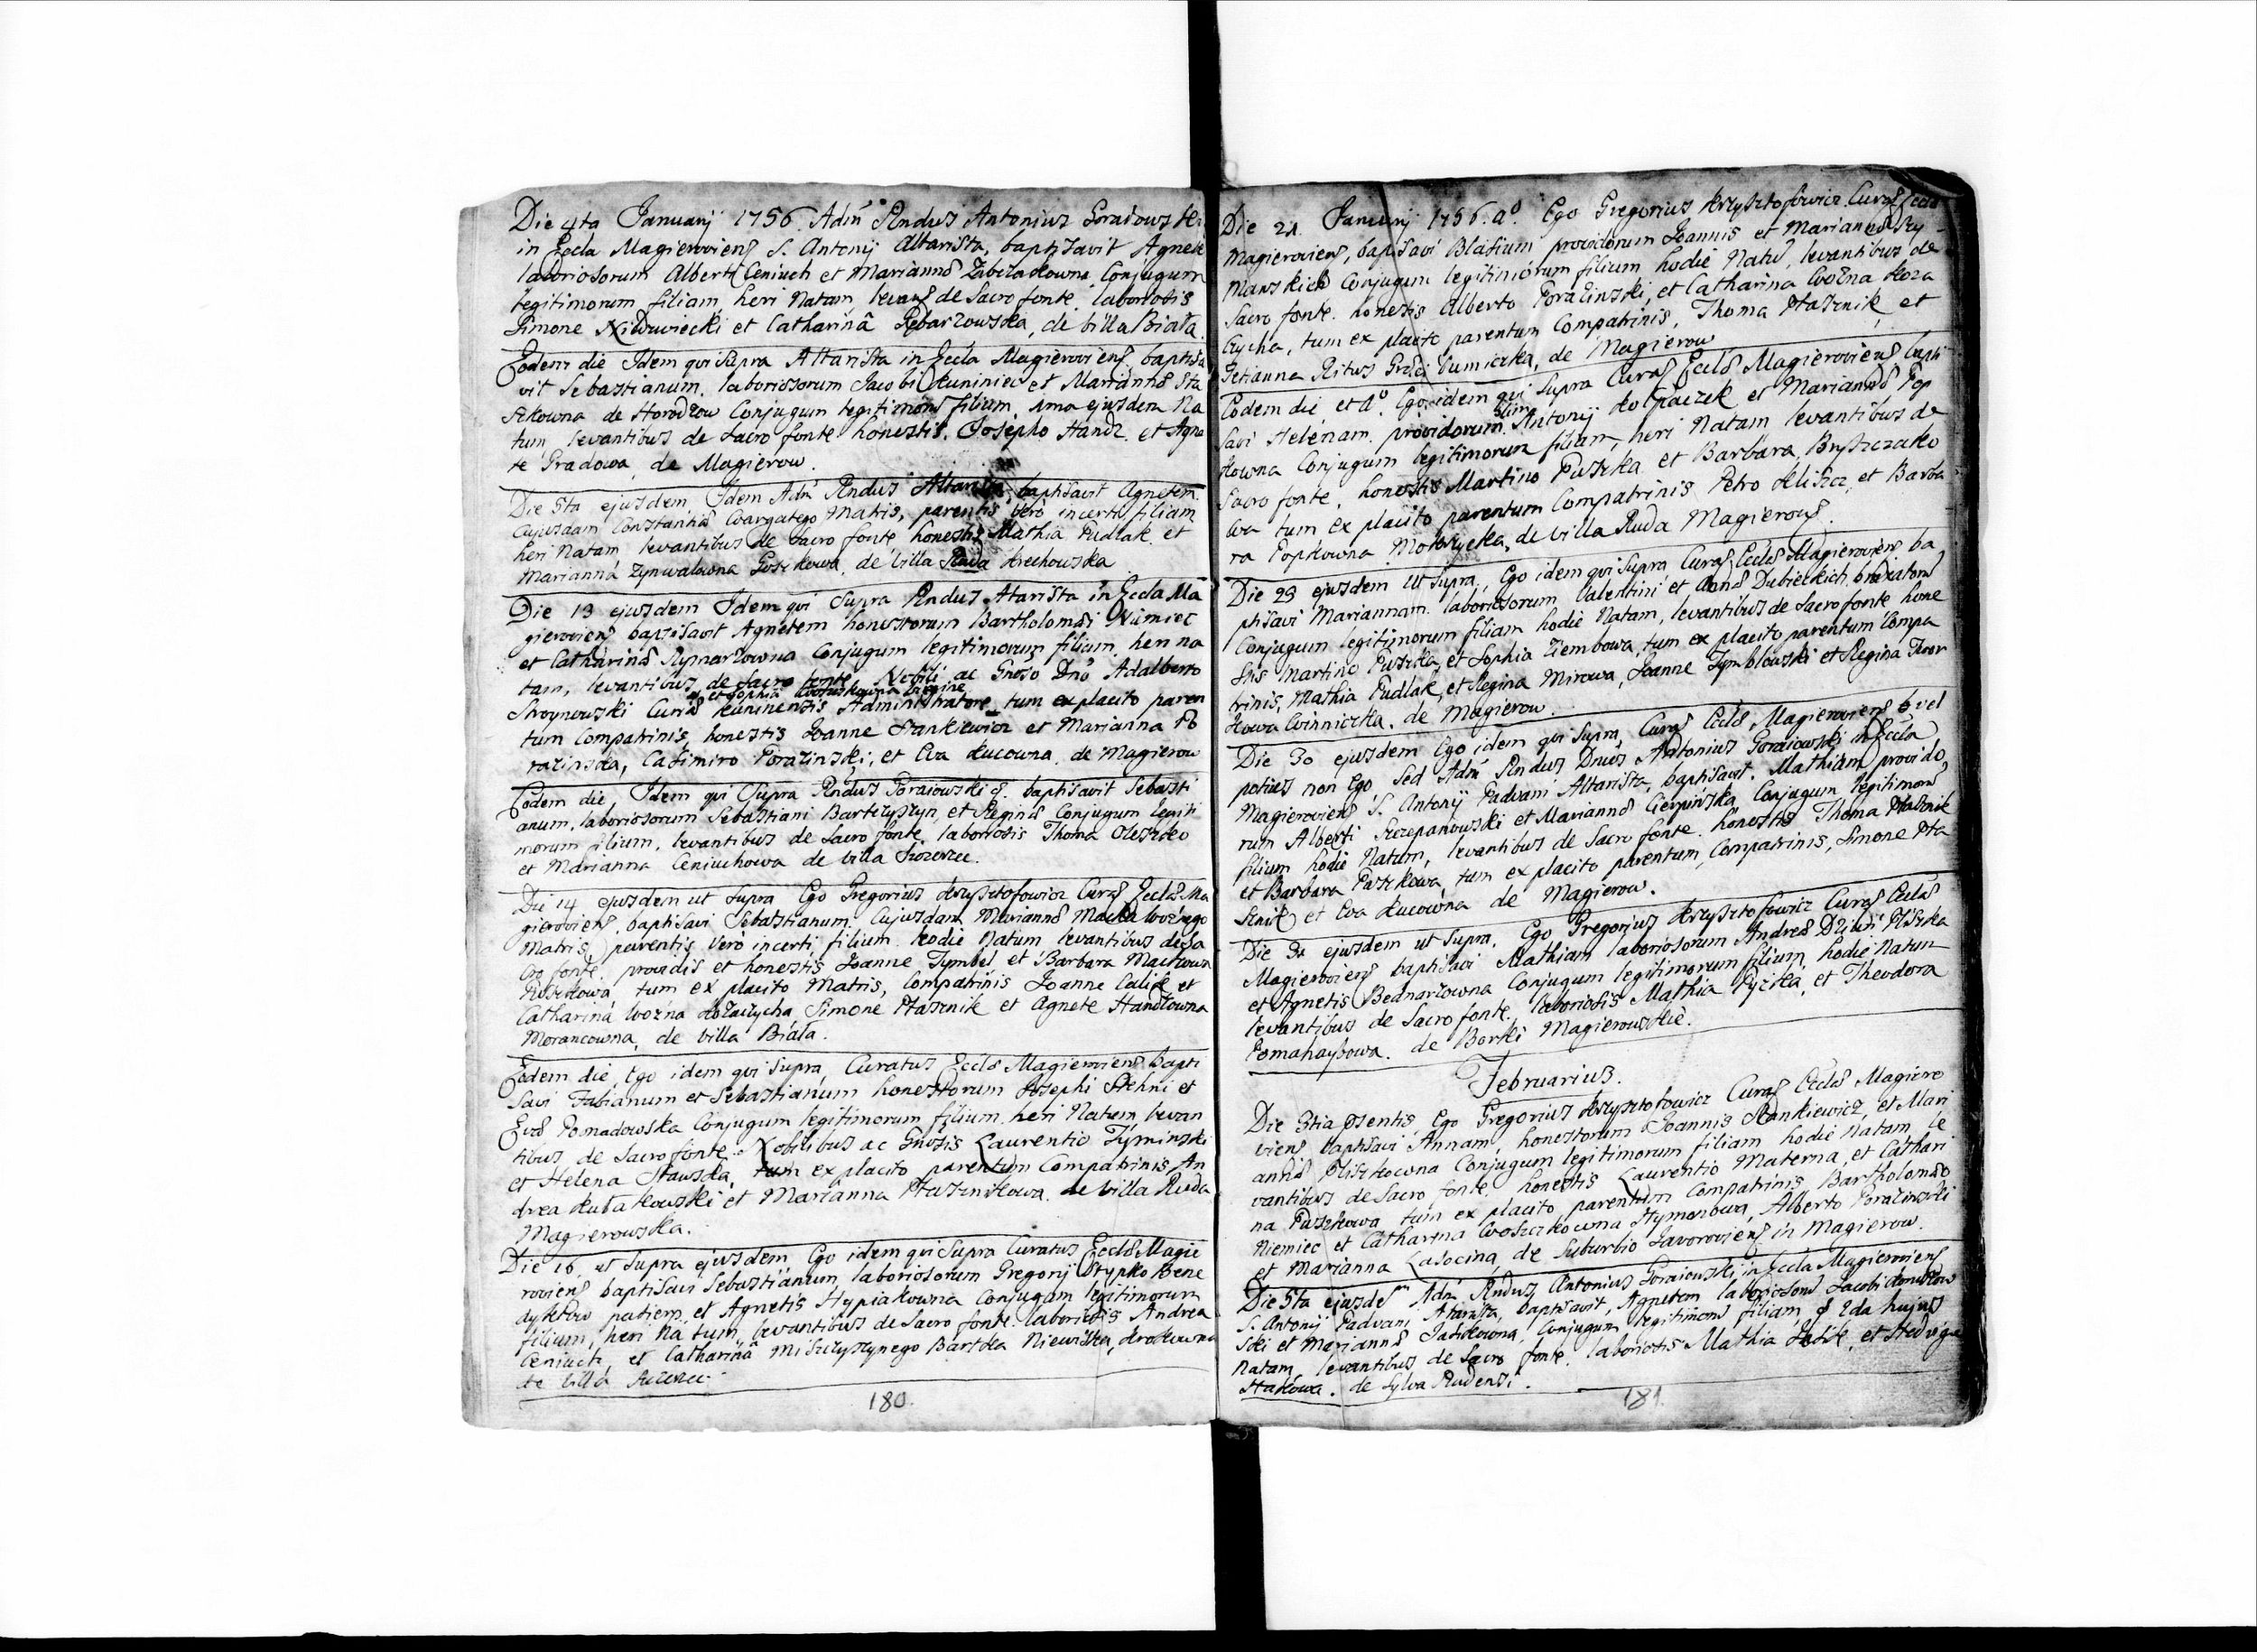 Die 4ta Januarij 1756 Adm Rndus Antonius Goraiowski
in Eccla Magieroviens S. Antonij Altarista, baptisavit Agnete
laboriosorum Alberti Ceniuch et Mariannæ Conjugum
legitimorum filiam, heri Natam levans de Sacro fonte laboriosis
Simone et Catharinâ de villa Biała
Eodem die Idem qui Supra Altarista in Eccla Magieroviens baptisa
vit Sebastianum laboriosorum Jacobi Kuniniec et Mariannæ Sta
de Horodzow Conjugum legitimorũ filium, ima ejusdem Na
tum, levantibus de Sacro fonte honestis, Josepho Handz et Agne
te Gradowa de Magierow.
Die 5ta ejusdem Idem Adm Rndus Altarista, baptisavit Agnetem
Cujusdam Constantiæ Matris, parentis Verò incerti filiam
heri Natam levantibus de Sacro fonte honestis Mathia Pudlak et
Marianna Zynwalowna de Villa Ruda Krechowska
Die 13 ejusdem Idem qui Supra Rndus Atarista in Eccla Ma
gieroviens baptisavit Agnetem honestorum Bartholomæi Nimiec
et Catharinæ Rymarzowna Conjugum legitimorum filiam, heri na
tam, levantibus de Sacro fonte Nobili ac Gnoso Dno Adalberto
et Sophia Virgine
Stroynowski Curæ Kuninensis Administratore tum ex placito paren
tum Compatrinis, honestis Joanne Stankiewicz et Marianna Po
razinska, Casimiro Porazinski, et Eva Kucowna de Magierow
Eodem die Idem qui Supra Rndus Goraiowski baptisavit Sebasti
anum, laboriosorum Sebastiani Bartczyszyn et Reginæ Conjugum legiti
morum filium, levantibus de Sacro fonte laboriosis Thoma Oleszko
et Marianna Ceniuchowa de villa
Die 14 ejusdem ut Supra Ego Gregorius Krzysztofowicz Curas Ecclæ Ma
gieroviens, baptisavi Sebastianum Cujusdam Mariannæ
Matris parentis Verò incerti filium hodie Natum levantibus de Sa
cro fonte providis et honestis Joanne Tymbel et Barbara
tum ex placito Matris, Compatrinis Joanne et
Catharina Wozna Simone Ptasznik et Agnete Handzowna
Morancowna, de villa Biała.
Eodem die Ego idem qui Supra, Curatus Ecclæ Magieroviens bapti
Savi Fabianum et Sebastianum honestorum Josephi et
Evæ Pomadowska Conjugum legitimorum filium heri Natum levan
tibus de Sacro fonte Nobilibus ac Gnosis Laurentio Tyminski
et Helena tum ex placito parentum Compatrinis An
drea Kubakowski et Marianna Ptasznikowa de villa Ruda
Magierowska.
Die 16 ut Supra ejusdem Ego idem qui Supra Curatus Ecclæ Magie
roviens baptisavi Sebastianum laboriosorum Gregorij Stypko Bene
patiem et Agnetis Hypiakowna Conjugum legitimorum
filium, heri Natum, levantibus de Sacro fonte laboriosis Andrea
Ceniuch, et Catharinâ Bartka
de villa
180.
Die 21 Januarij 1756. Aº. Ego Gregorius Krzysztofowicz Curas Ecclæ
Magieroviens, baptisavi Blasium providorum Joannis et Mariannæ Szy
manskich Conjugum legitimorum filium hodie Natũ, levantibus de
Sacro fonte honestis Alberto Porazinski, et Catharina Wozna Koza
czycha, tum ex placito parentum Compatrinis, Thoma Ptasznik et
Ritus Græci de Magierow
Eodem die et Aº. Ego idem qui Supra Curas Ecclæ Magieroviens bapti
Savi Helenam providorum Antonij Kolpaczek et Mariannæ Pop
kowna Conjugum legitimorum filiam, heri Natam levantibus de
Sacro fonte, honestis Martino Puszka et Barbara
wa tum ex placito parentum Compatrinis Petro et Barba
ra Popkowna de villa Ruda Magierows.
Die 23 ejusdem ut Supra, Ego idem qui Supra Curas Ecclæ Magieroviens ba
ptisavi Mariannam laboriosorum Valentini et Annæ Dubieckich braxatorũ
Conjugum legitimorum filiam hodie Natam, levantibus de Sacro fonte hone
stis Martino Puszka, et Sophia Ziembowa, tum ex placito parentum Compa
trinis, Mathia Pudlak, et Regina Mirowa, Joanne Tymblowski et Regina
Winniczka. de Magierow.
Die 30 ejusdem Ego idem qui Supra Curas Ecclæ Magieroviens vel
potius non Ego, Sed Adm Rndus Dnus Antonius Goraiowski in Eccla
Magieroviens S. Antonij Padvani Altarista, baptisavit Mathiam provido
rum Alberti Szczepanowski et Mariannæ Cierpinska Conjugum legitimorũ
filium hodie Natum, levantibus de Sacro fonte honestis Thoma Ptasznik
et Barbara Puszkowa, tum ex placito parentum, Compatrinis, Simone Pta
sznik et Eva Kucowna de Magierow.
Die 31 ejusdem ut Supra, Ego Gregorius Krzysztofowicz Curas Ecclæ
Magieroviens baptisavi Mathiam laboriosorum Andreæ
et Agnetis Bednarzowna Conjugum legitimorum filium hodie Natum
levantibus de Sacro fonte, laboriosis Mathia Pyzka, et Theodora
de Borki Magierowskie.
Februarius.
Die 3tia psentis, Ego Gregorius Krzysztofowicz Curas Ecclæ Magiero
viens baptisavi Annam, honestorum Joannis Stankiewicz, et Mari
annæ Conjugum legitimorum filiam hodie Natam le
vantibus de Sacro fonte honestis Laurentio Materna, et Cathari
na Puszkowa tum ex placito parentum Compatrinis Bartholomæo
Niemiec et Catharina Szymonowa, Alberto Porazinski
et Marianna Lasocina de Suburbio Javoroviens in Magierow.
Die 5ta ejusdem Adm Rndus Antonius Goraiowski in Eccla Magieroviens
S. Antonij Padvani Atarista, baptisavit, Agnetem laboriosorũ Jacobi
ski et Mariannæ Conjugum legitimorũ filiam, 2da hujus
Natam levantibus de Sacro fonte laboriosis Mathia et Hedvige
de Sylva Rudensi.
181.